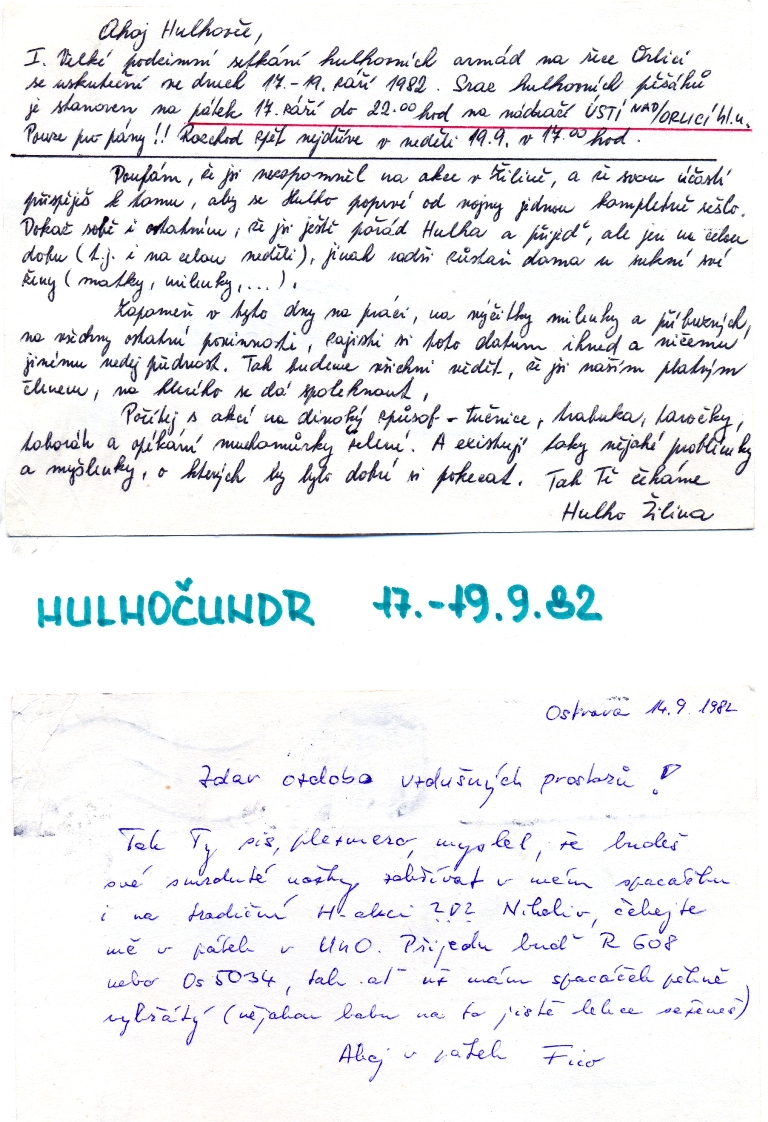 Ahoj Hulhovče,
I. Velké podzimní setkání hulhovních armád na řece Orlici
se uskuteční ve dnech 17.-19. září 1982. Sraz hulhovních pěšáků
je stanoven na pátek 17. září do 22.00 hod na nádraží ÚSTÍ NAD/ORLICÍ hl.n.
Pouze pro pány!! Rozchod zpět nejdříve v neděli 19.9. v 17.00 hod.
Doufám, že jsi nezapomněl na akce v Žilině, a že svou účastí
přispěješ k tomu, aby se Hulho poprvé od vojny jednou kompletně sešlo.
Dokaž sobě i ostatním, že jsi ještě pořád Hulha a přijeď, ale jen na celou
dobu (t.j. i na celou neděli), jinak radši zůstaň doma u sukní své
ženy (matky, milenky,...).
Zapomeň v tyto dny na práci, na výčitky milenky a příbuzných,
na všechny ostatní povinnosti, zajisti si toto datum ihned a ničemu
jinému nedej přednost. Tak budeme všichni vědět, že jsi naším platným
členem, na kterého se dá spolehnout,
Počítej s akcí na divoký způsob - tučnice, trabuka, taročky,
táborák a opékání muchomůrky zelené. A existují taky nějaké problémky
a myšlenky, o kterých by bylo dobré si pokecat. Tak Tě čekáme
Hulho Žilina
HULHOČUNDR 17.-19.9.82
Ostrava 14.9.1982
Zdar ozdobo vzdušných prostorů!
Tak Ty sis, plexmero, myslel, že budeš
své smraduté nožky zahřívat v mém spacáčku
i na tradiční H-akci ??? Nikoliv, čekejte
mě v pátek v UNO. Přijedu buď R 608
nebo Os 5034, tak ať už mám spacáček pěkně
vyhřátý (nějakou babu na to jistě lehce seženeš)
Ahoj v pátek Fico